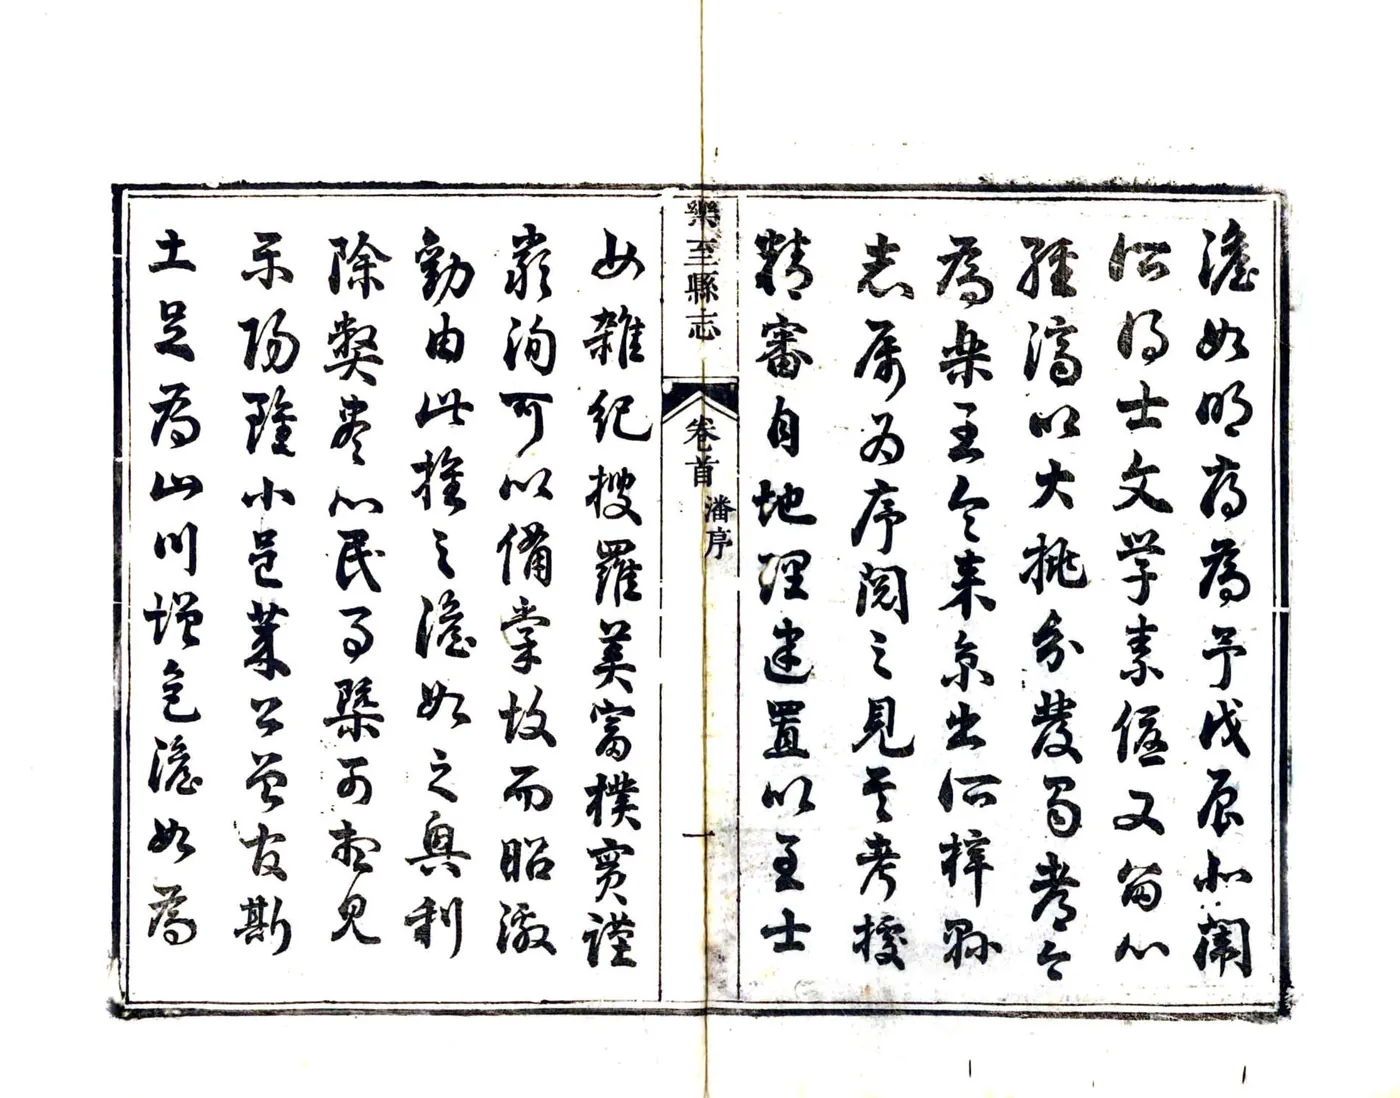 澹如明府為予戊辰北闈
所得士文学素優又留心
經濟以大挑分發蜀今
為樂至令来京出所梓縣
志属為序閱之見其考據
精審自地理建置以至士
樂至縣志 卷首 潘序 一
女雜紀搜羅美富樸實謹
嚴洵可以備掌故而昭激
勸由此推之澹如之興利
除弊盡心民事槩可想見
樂陽雖小邑公曾官斯
土足為山川增色澹如為